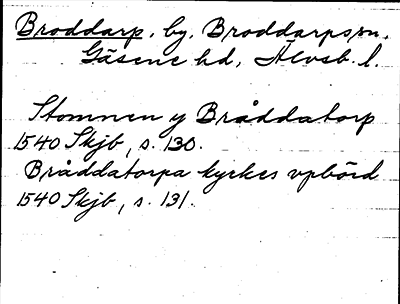 Broddarp, by, Broddarps sn,
Gäsene hd, Älvsb. l.
Stommen y Bråddatorp
1540 Skjb, s. 130.
Bråddatorpa kyrkes vpbörd
1540 Skjb, s. 131.